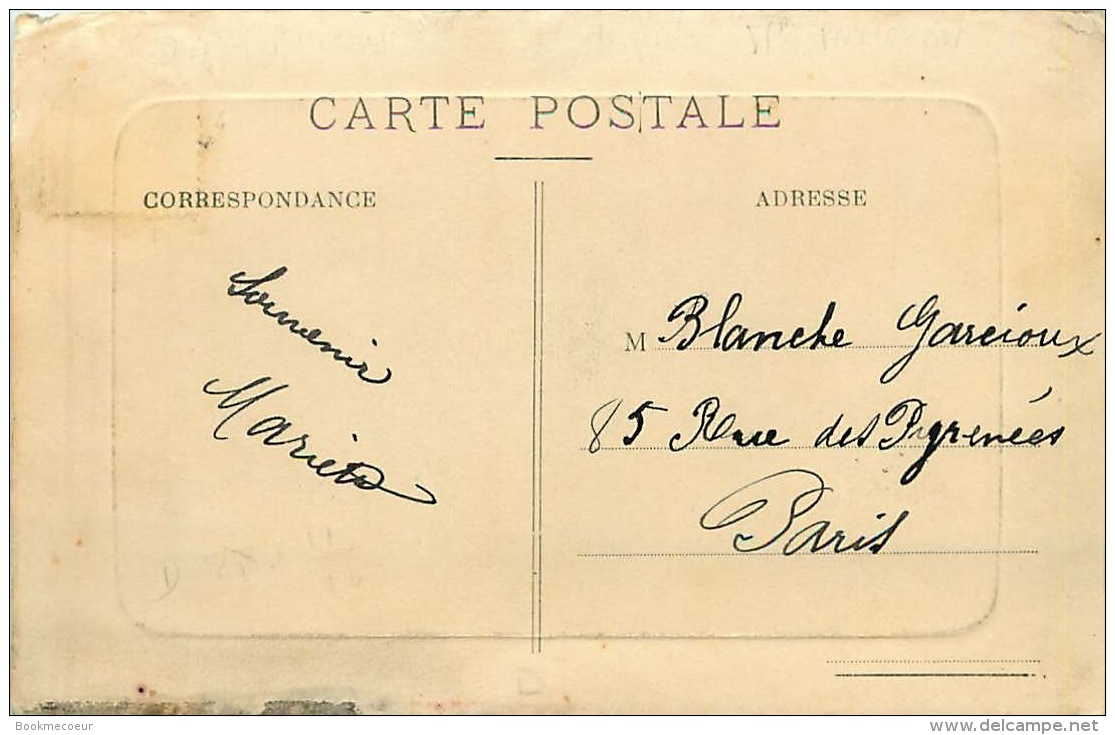 CARTE POSTALE
CORRESPONDANCE
ADRESSE
Souvenir
M Blanche Garcioux
85 Rue des Pyrenées
Paris
Bookmecoeur
www.delcampe.net